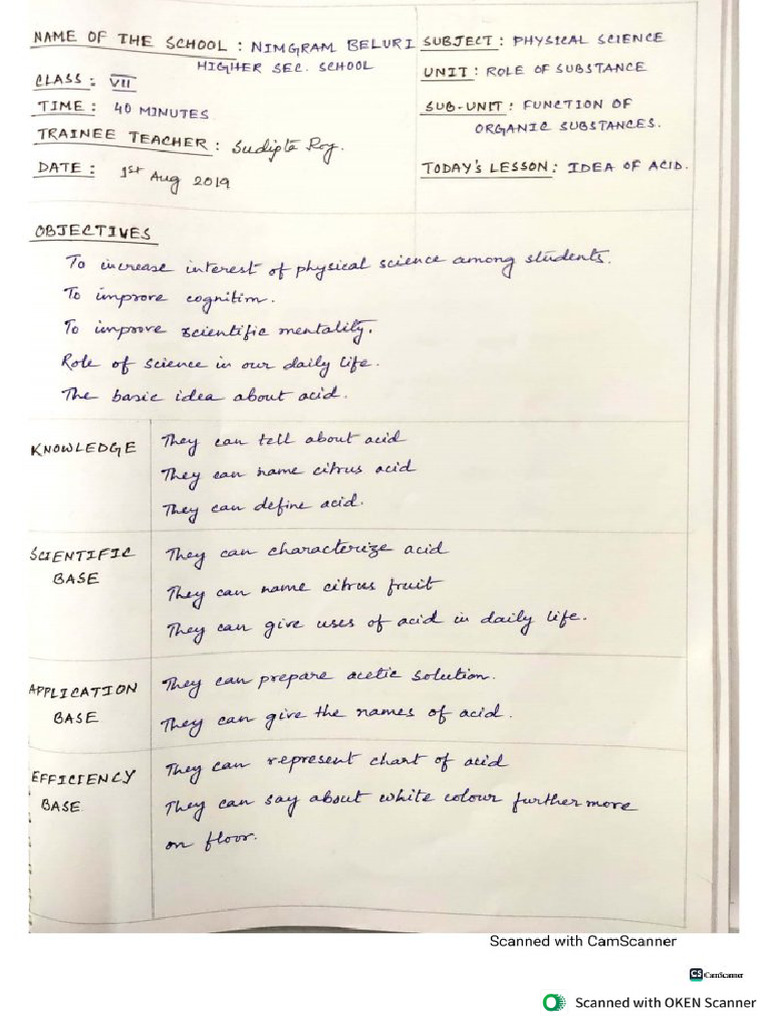 NAME OF THE SCHOOL : NIMGRAM BELURI
HIGHER SEC. SCHOOL
CLASS : VII
TIME : 40 MINUTES
TRAINEE TEACHER : Sudipta Roy.
DATE : 1st Aug 2019
SUBJECT : PHYSICAL SCIENCE
UNIT : ROLE OF SUBSTANCE
SUB-UNIT : FUNCTION OF
ORGANIC SUBSTANCES.
TODAY'S LESSON : IDEA OF ACID.
OBJECTIVES
To increase interest of physical science among students.
To improve cognition.
To improve scientific mentality.
Role of science in our daily life.
The basic idea about acid.
KNOWLEDGE
They can tell about acid
They can name citrus acid
They can define acid.
SCIENTIFIC
BASE
They can characterize acid
They can name citrus fruit
They can give uses of acid in daily life.
APPLICATION
BASE
They can prepare acetic solution.
They can give the names of acid.
EFFICIENCY
BASE
They can represent chart of acid
They can say about white colour furthermore
on floor.
Scanned with CamScanner
CS CamScanner
Scanned with OKEN Scanner